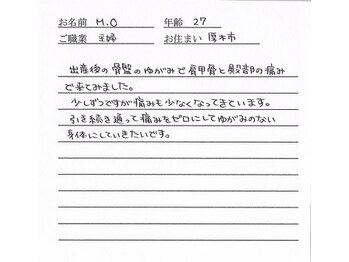 お名前 M.O 年齢 27
ご職業 主婦 お住まい 厚木市
出産後の骨盤のゆがみで肩甲骨と殿部の痛み
で来てみました。
少しずつですが痛みも少なくなってきています。
引き続き通って痛みをゼロにしてゆがみのない
身体にしていきたいです。